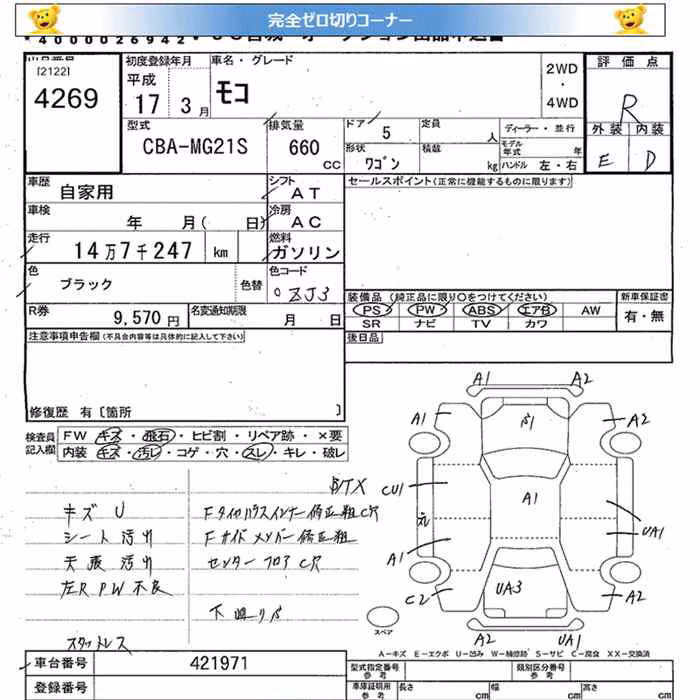 完全ゼロ切りコーナー
[2122]
4269
初度登録年月
平成
17 3月
車名・グレード
モコ
2WD
・
4WD
評価点
R
外装 内装
E D
型式
CBA-MG21S
排気量
660
CC
ドア
5
定員
人
形状
ワゴン
積載
kg
ディーラー・並行
モデル年式
年
ハンドル 左・右
車歴
自家用
シフト
AT
セールスポイント(正常に機能するものに限ります)
車検
年 月( 日)
冷房
AC
走行
14万7千247 km
燃料
ガソリン
色
ブラック
色替
色コード
ZJ3
R券
9,570 円
名変通知期限
月 日
装備品(純正品に限り○をつけてください)
PS PW ABS エアB AW
SR ナビ TV カワ
新車保証書
有・無
後日品
注意事項申告欄(不具合内容等は具体的に記入して下さい)
修復歴 有〔箇所 〕
検査員記入欄
FW キズ・飛石・ヒビ割・リペア跡・×要
内装 キズ・汚レ・コゲ・穴・スレ・キレ・破レ
キズ U
シート汚れ
天張汚れ
左R PW不良
スタットレス
Fタイヤハウスインナー修正粗C穴
Fサイドメンバー修正粗
センターフロアC穴
A1 A2
A1 A2
CU1
A1
A1
UA1
C2
UA3
A2
A2 UA1
スペア
A-キズ E-エクボ U-凹み W-補修跡 S-サビ C-腐食 XX-交換済
車台番号
421971
登録番号
型式指定番号
参考
類別区分番号
参考
車庫証明用
参考
長さ cm 幅 cm 高さ cm